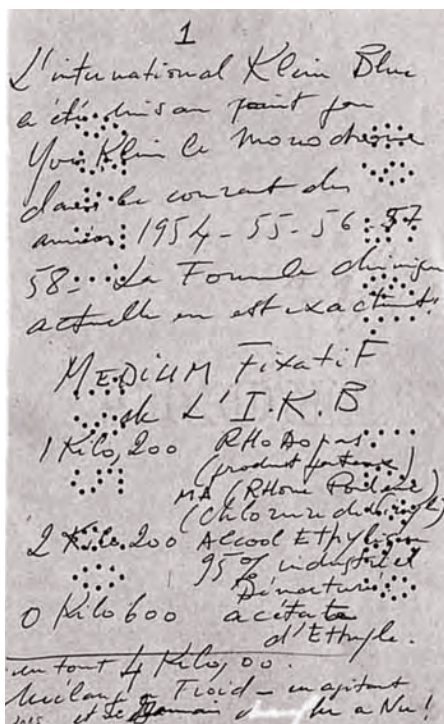 1
L'international Klein Blue
a été mis au point par
Yves Klein le Monochrome
dans le courant des
années 1954-55-56-57
58- La Formule chimique
actuelle en est exactement.
MEDIUM FixatiF
de L'I.K.B
1 Kilo,200 RHoDopas
(produit pateux)
MA (RHone Poulenc)
(Chlorure de
2 Kilo 200 Alcool Ethylique
95% industriel
Dénaturé
0 Kilo 600 acétate
d'Ethyle.
en tout 4 Kilo,00.
Mélange à Froid - en agitant
et Jamais à Nu!